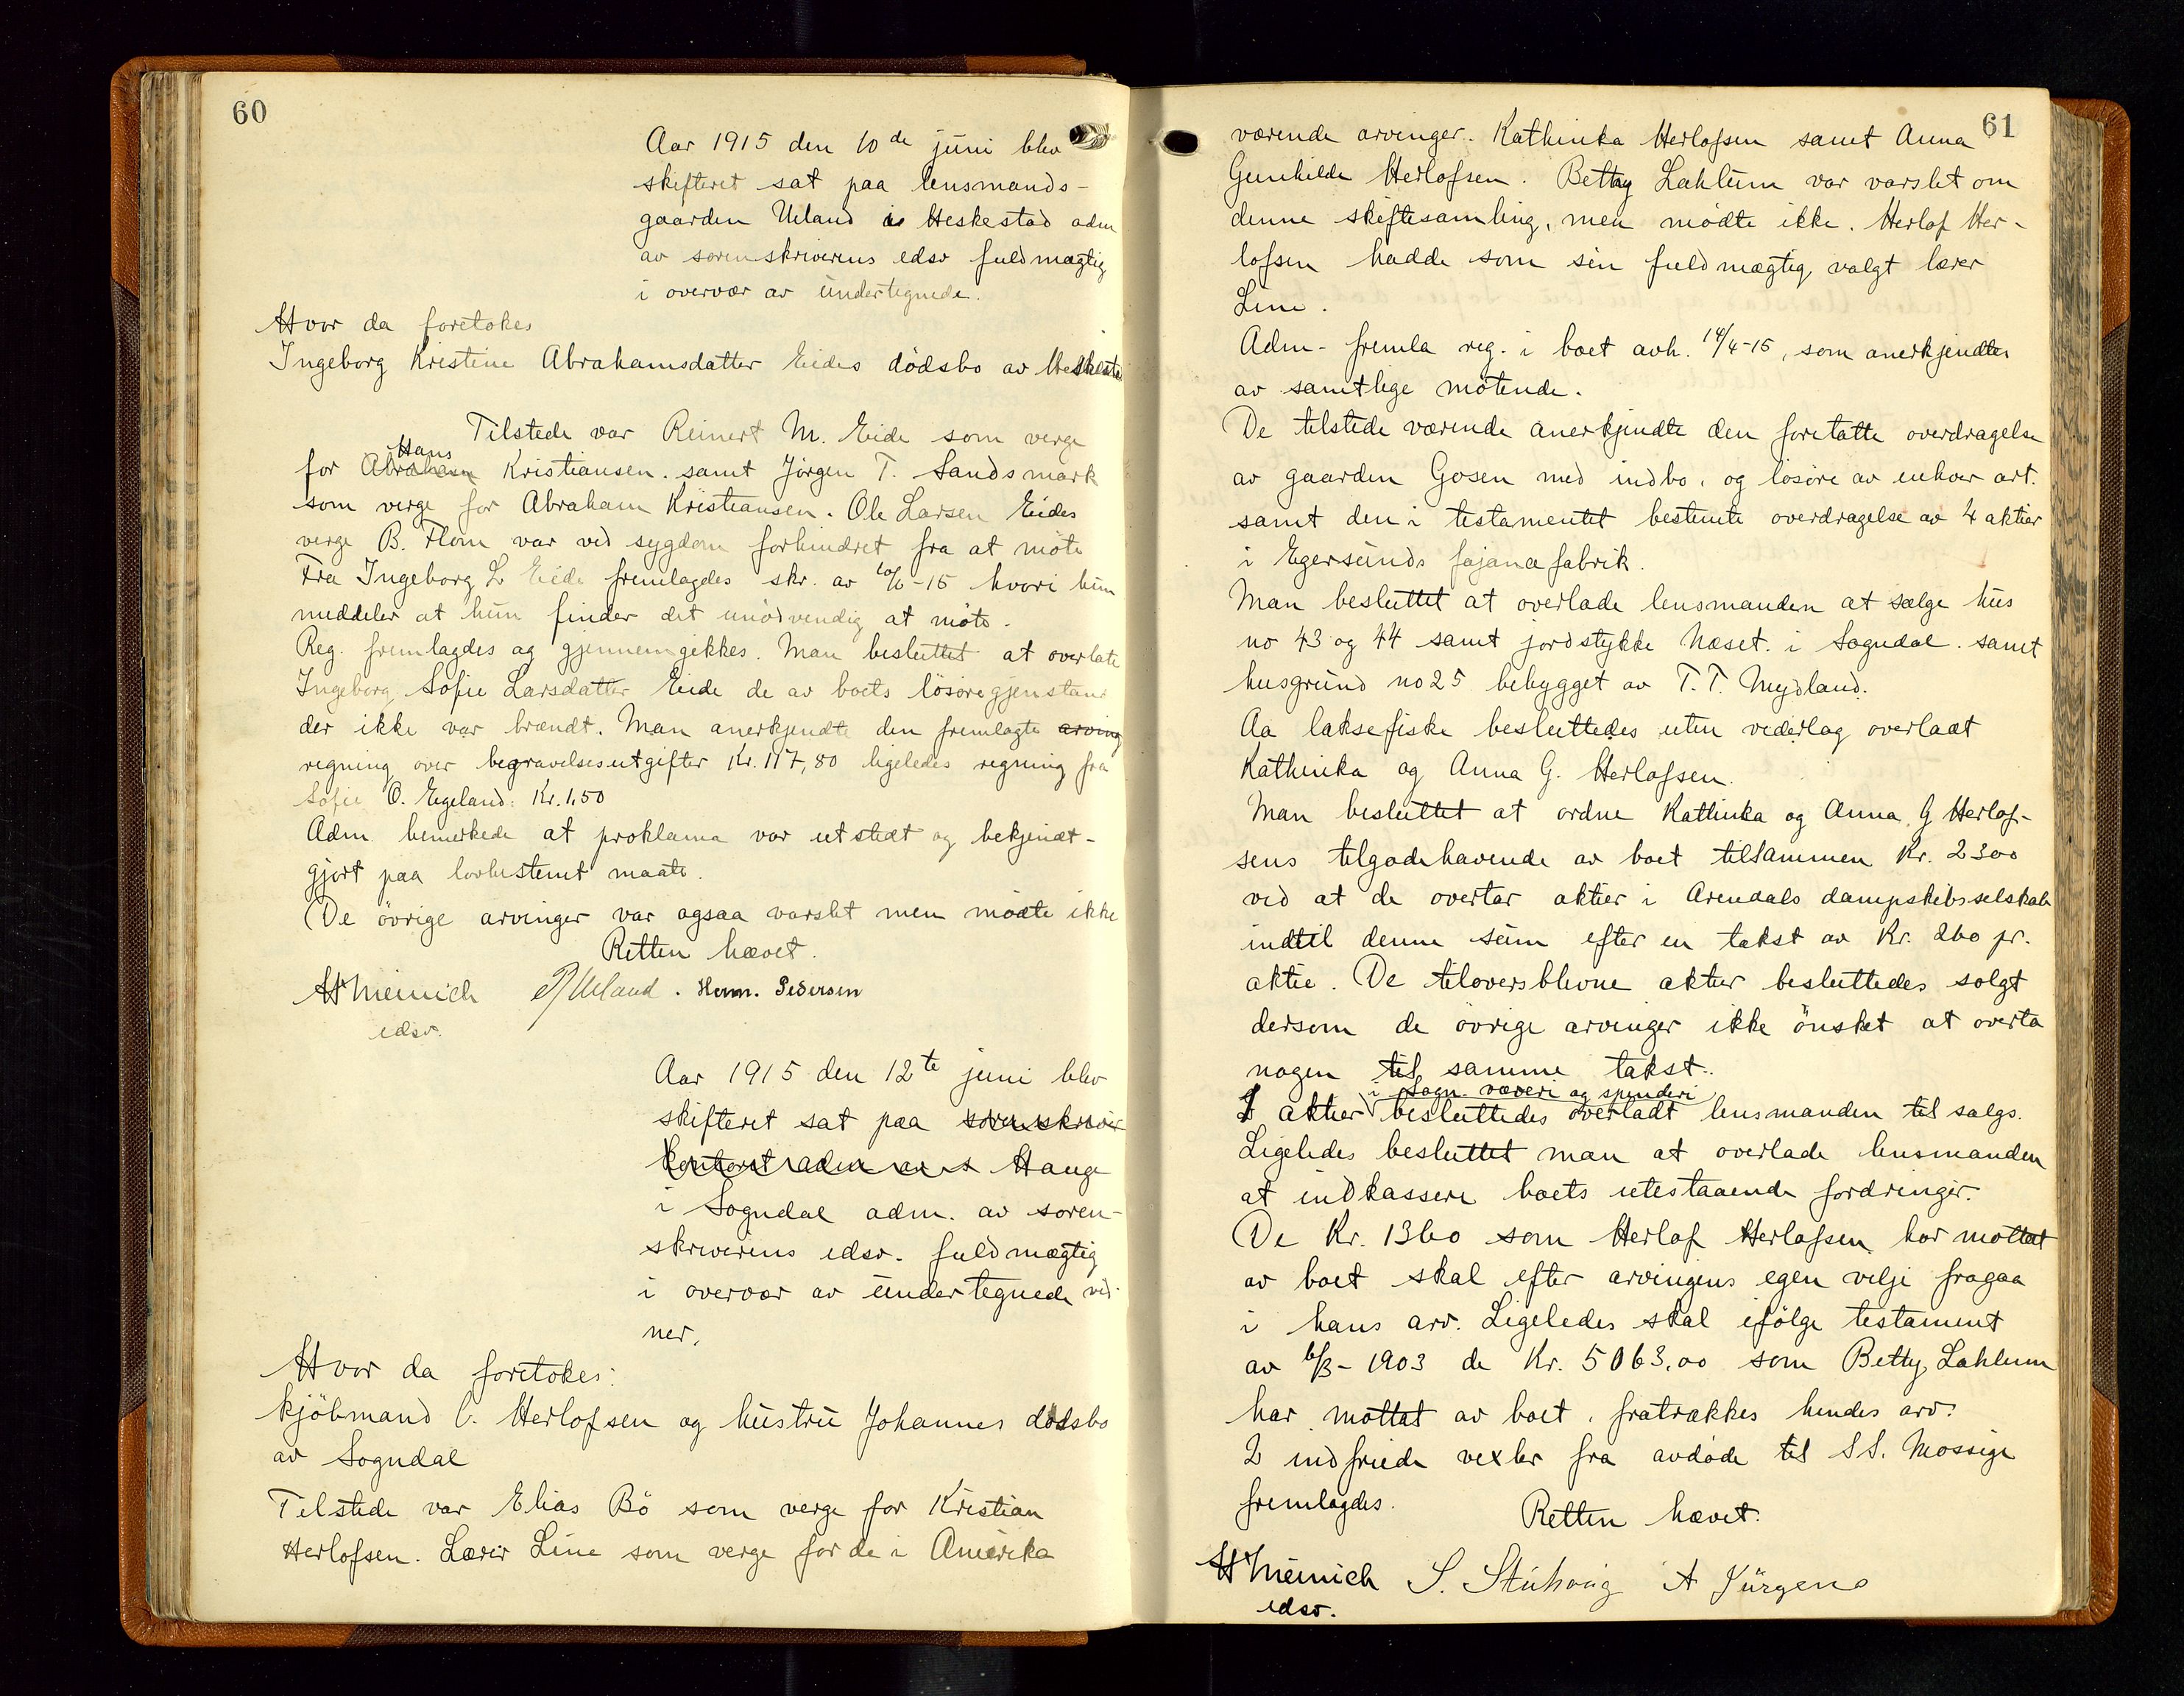 60
Aar 1915 den 10de juni blev
skifteret sat paa lensmands-
gaarden Ueland i Heskestad adm
av sorenskriverens edsv fuldmægtig
i overvær av undertegnede.
Hvor da foretokes
Ingeborg Kristine Abrahamsdatter Eides dödsbo av Heskestad
Tilstede var Reinert M. Eide som verge
Hans
for Abraham Kristiansen. samt Jörgen T. Sandsmark
som verge for Abraham Kristiansen. Ole Larsen Eides
verge B. Flom var ved sygdom forhindret fra at möte
Fra Ingeborg L Eide fremlagdes skr. av 10/6-15 hvori hun
meddeler at hun finder det unödvendig at möte.
Reg. fremlagdes og gjennemgikkes. Man besluttet at overlate
Ingeborg Sofie Larsdatter Eide de av boets lösöregjenstan
der ikke var brændt. Man anerkjendte den fremlagte arving
regning over begravelsesutgifter Kr. 117,80 ligeledes regning fra
Sofie O. Egeland: Kr. 1,50
Adm. bemerkede at proklama var utstedt og bekjendt-
gjort paa lovbestemt maate.
De övrige arvinger var ogsaa varslet men mödte ikke
Retten hævet.
H Meinich P Ueland. Herm. Pedersen
edsv.
Aar 1915 den 12te juni blev
skifteret sat paa sorenskriver
kontoret adm av s Hauge
i Sogndal adm. av soren-
skriverens edsv. fuldmægtig
i overvær av undertegnede vid-
ner.
Hvor da foretokes:
kjöbmand C. Herlofsen og hustru Johannes dödsbo
av Sogndal
Tilstede var Elias Bö som verge for Kristian
Herlofsen. Lærer Line som verge for de i Amerika
61
værende arvinger. Kathinka Herlofsen samt Anna
Gunhilde Herlofsen. Betty Lahlum var varslet om
denne skiftesamling, men mödte ikke. Herlof Her-
lofsen hadde som sin fuldmægtig valgt lærer
Line.
Adm. fremla reg. i boet avh. 14/4-15, som anerkjendtes
av samtlige mötende.
De tilstede værende anerkjendte den foretatte overdragelse
av gaarden Gosen med indbo, og lösöre av enhver art.
samt den i testamentet bestemte overdragelse av 4 aktier
i Egersunds fajancefabrik.
Man besluttet at overlade lensmanden at sælge hus
no 43 og 44 samt jordstykke Næset. i Sogndal. samt
husgrund no 25 bebygget av T. T. Mydland.
Aa laksefiske besluttedes uten vederlag overlaat
Kathinka og Anna G. Herlofsen.
Man besluttet at ordne Kathinka og Anna G Herlof-
sens tilgodehavende av boet tilsammen Kr. 2300
ved at de overtar aktier i Arendals dampskibsselskab
indtil denne sum efter en takst av Kr. 260 pr.
aktie. De tiloversblevne aktier besluttedes solgt
dersom de övrige arvinger ikke önsket at overta
nogen til samme takst.
i Sogn. væveri og spinderi
1 aktier besluttedes overladt lensmanden til salgs.
Ligeledes besluttet man at overlade lensmanden
at indkassere boets utestaaende fordringer.
De Kr. 1360 som Herlof Herlofsen har mottat
av boet skal efter arvingens egen vilje fragaa
i hans arv. Ligeledes skal ifölge testament
av 6/3-1903 de Kr. 5063,00 som Betty Lahlum
har mottat av boet, fratrækkes hendes arv.
2 indfriede vexler fra avdöde til S S. Mossige
fremlagdes.
Retten hævet.
H Meinich S. Stuhaug A Jürgens
edsv.